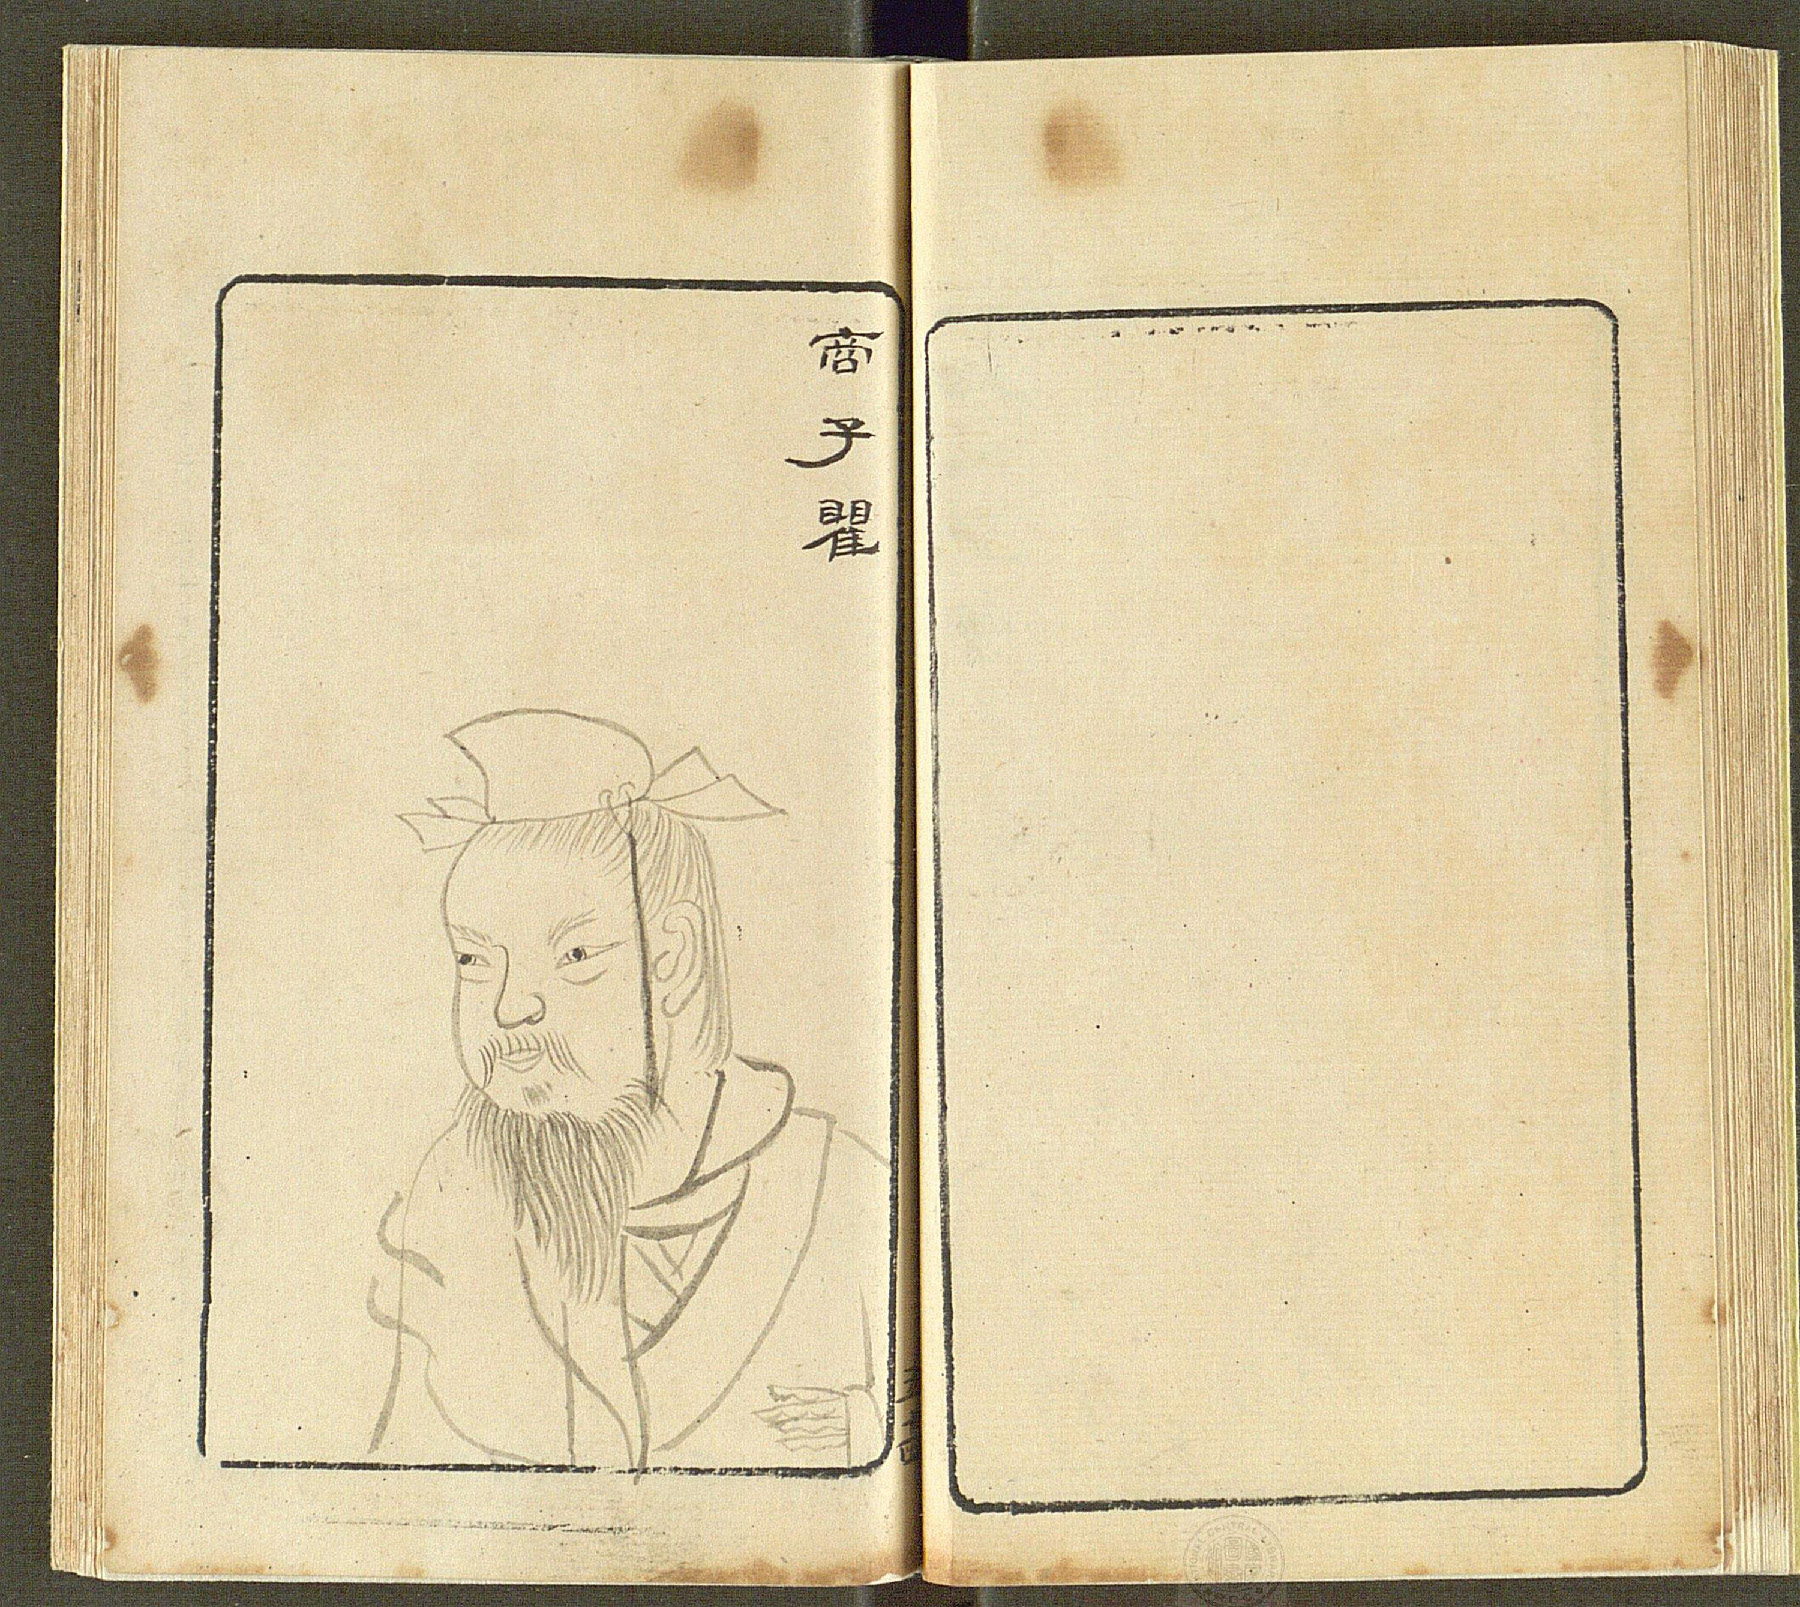 商子瞿